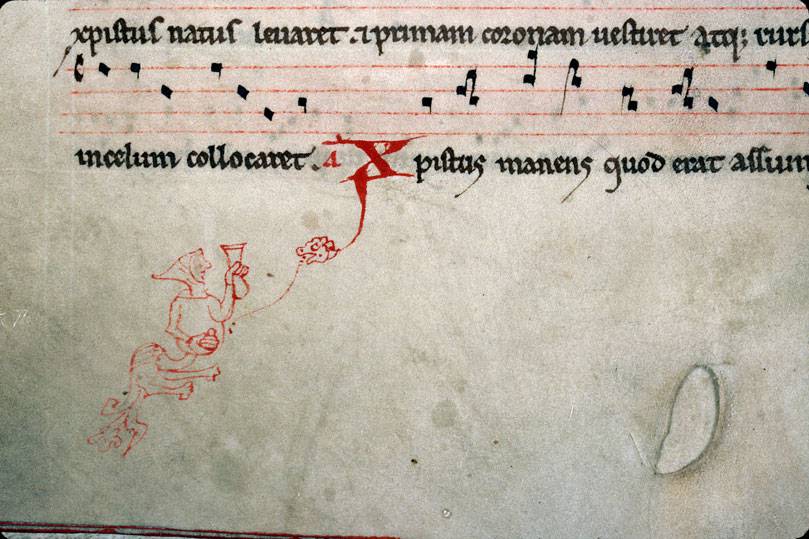 xpistus natus levaret. et primam coronam vestiret Atq; rurs
incelum collocaret. a Xpistus manens quod erat assum